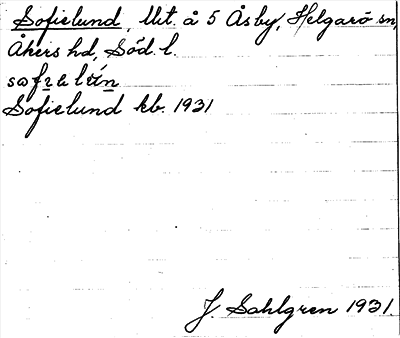 Sofielund, lht. å 5 Åsby, Helgarö sn,
Åkers hd, Söd. l.
Sofielund kb. 1931
J. Sahlgren 1931.